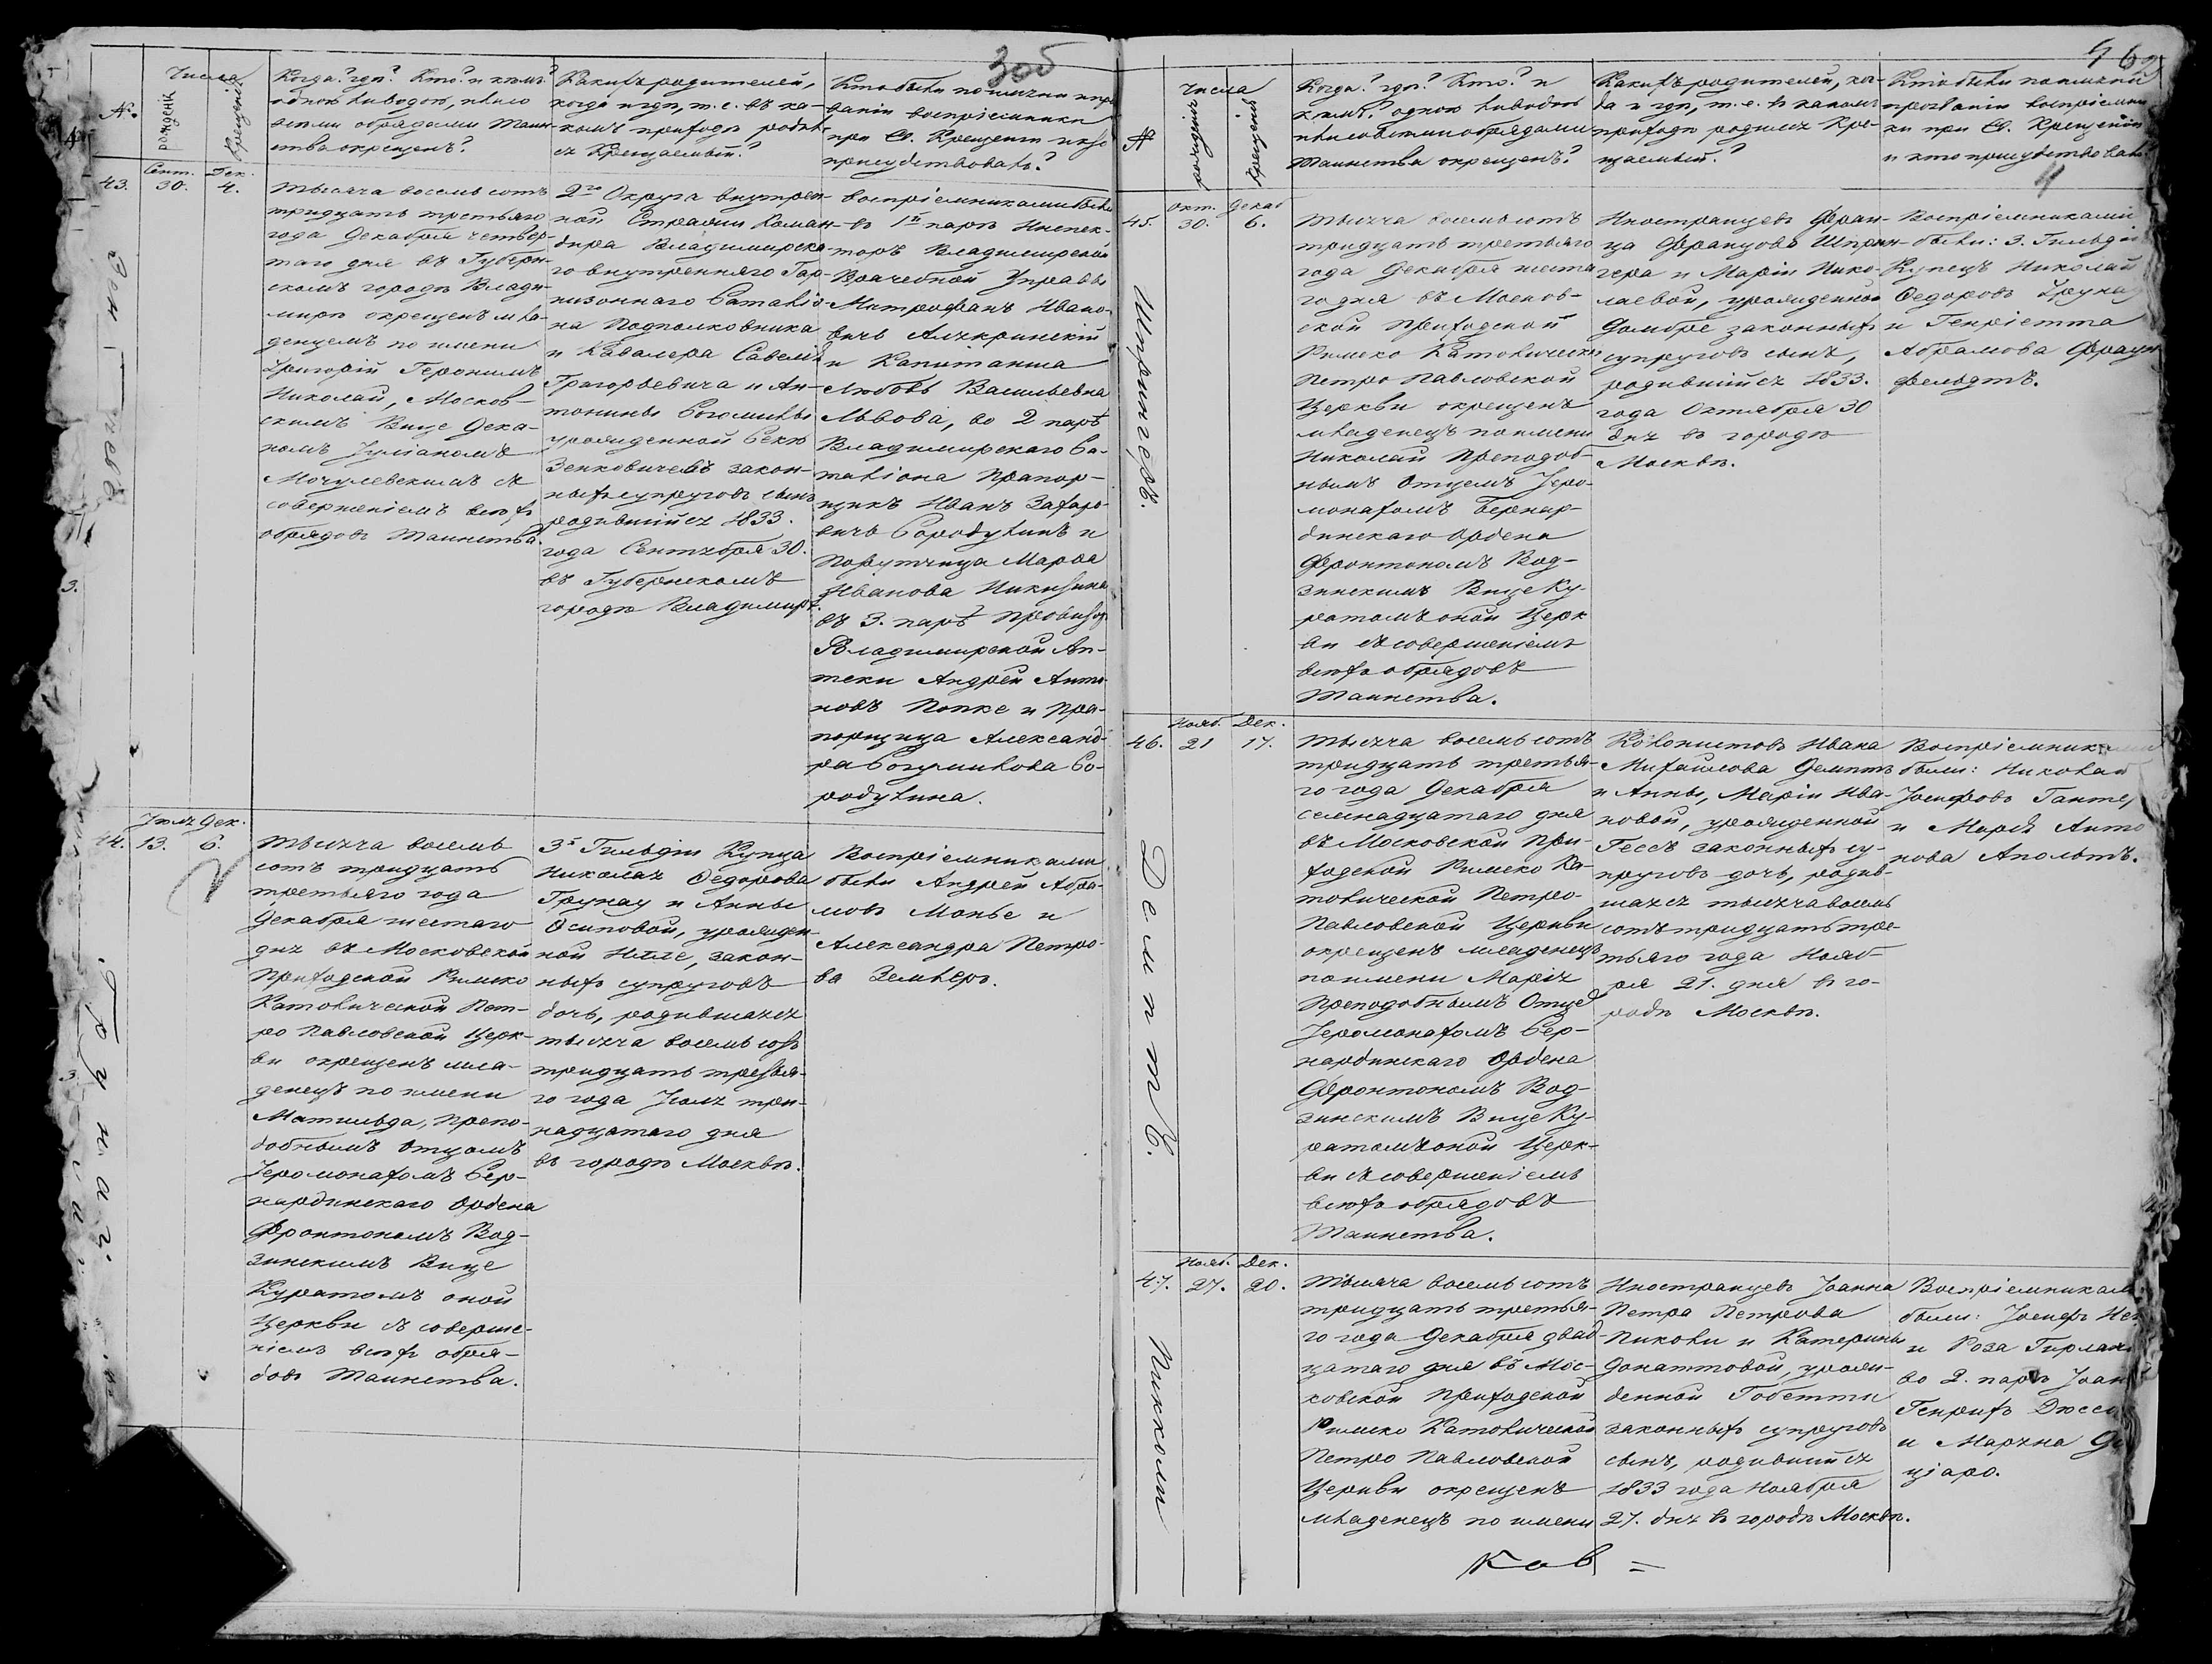 305
№.
Числа
рожденія
Крещенія
Когда? гдѣ? Кто? и кѣмъ?
однею ли водою, или со
всѣми обрядами Таин-
ства окрещенъ?
Какихъ родителей,
когда и гдѣ, т. е. въ ка-
комъ приходѣ родил-
ся Крещаемый?
Кто были по имени и про
званіи воспріемники
при Св. Крещеніи и кто
присудствовалъ?
43.
Сент.
30.
Дек.
4.
Тысяча восемь сотъ
тридцать третьяго
года Декабря четвер-
таго дня въ Губерн-
скомъ городѣ Влади-
мирѣ окрещенъ мла-
денецъ по имени
Григорій Геронимъ
Николай, Москов-
скимъ Вице Дека-
номъ Іуліаномъ
Мочулевскимъ съ
совершеніемъ всѣхъ
обрядовъ Таинства.
2го Округа внутрен-
ной Стражи Коман-
дира Владимирска-
го внутренняго Гар-
низоннаго Баталіо-
на Подполковника
и Кавалера Савелія
Григорьевича и Ан-
тонины Богомилы
урожденной Секю
Зенковичевъ закон-
ныхъ супруговъ сынъ
родившійся 1833.
года Сентября 30.
въ Губернскомъ
городѣ Владимирѣ.
Воспріемниками были
въ 1й парѣ Инспек-
торъ Владимирской
Врачебной Управы
Митрофанъ Ивано-
вичъ Алякринскій
и Капитанша
Любовь Васильевна
Львова, во 2 парѣ
Владимирскаго Ба-
таліона Прапор-
щикъ Иванъ Захаро-
вичъ Бородулинъ и
Поручица Марфа
Иванова Никитина
въ 3. парѣ Провизоръ
Владимирской Ап-
теки Андрей Анто-
новъ Попке и Пра-
порщица Александ-
ра Богумилова Бо-
родулина.
44.
Іюля
13.
Дек.
6.
Грунау.
Тысяча восемь
сотъ тридцать
третьяго года
Декабря шестаго
дня въ Московской
Приходской Римско
Католической Пет-
ро Павловской Церк-
ви окрещенъ мла-
денецъ по имени
Матильда, Препо-
добнымъ Отцомъ
Іеромонахомъ Бер-
нардинскаго Ордена
Фронтономъ Вод-
зинскимъ Вице
Куратомъ оной
Церкви съ соверше-
ніемъ всѣхъ обря-
довъ Таинства.
3й Гильдіи Купца
Николая Федорова
Грунау и Анны
Осиповой, урожден-
ной Нилле, закон-
ныхъ супруговъ
дочь, родившаяся
тысяча восемь сотъ
тридцать третья-
го года Іюля три-
надцатаго дня
въ городѣ Москвѣ.
Воспріемниками
были Андрей Абра-
мовъ Монье и
Александра Петро-
ва Землеръ.
№
Числа
рожденія
Крещенія
Когда? гдѣ? Кто? и
кѣмъ? одною ли водою
или со всѣми обрядами
Таинства окрещенъ?
Какихъ родителей, ког-
да и гдѣ, т. е. въ какомъ
приходѣ родился Кре-
щаемый?
Кто были по имени и
прозваніи воспріемни-
ки при Св. Крещеніи
и кто присудствовалъ?
45.
Окт.
30.
Декаб
6.
Шпрингеръ.
Тысяча восемь сотъ
тридцать третьяго
года Декабря шеста
го дня въ Москов-
ской Приходской
Римско Католической
Петро Павловской
Церкви окрещенъ
младенецъ по имени
Николай Преподоб-
нымъ Отцемъ Іеро-
монахомъ Бернар-
динскаго Ордена
Фронтономъ Вод-
зинскимъ Вице Ку-
ратомъ оной Церк
ви съ совершеніемъ
всѣхъ обрядовъ
Таинства.
Иностранцевъ Фран-
ца Францова Шприн-
гера и Маріи Нико-
лаевой, урожденной
Даломбре законныхъ
супруговъ сынъ,
родившійся 1833.
года Октября 30
дня въ городѣ
Москвѣ.
Воспріемниками
были: 3. Гильдіи
Купецъ Николай
Федоровъ Грунау
и Генріетта
Абрамова Фраун
фельдтъ.
46.
Нояб.
21
Дек.
17.
Демитъ.
Тысяча восемь сотъ
тридцать третья-
го года Декабря
семнадцатаго дня
въ Московской При-
ходской Римско Ка-
толической Петро-
Павловской Церкви
окрещенъ младенецъ
по имени Марія
Преподобнымъ Отцемъ
Іеромонахомъ Бер-
нардинскаго Ордена
Фронтономъ Вод-
зинскимъ Вице Ку-
ратомъ оной Церк-
ви съ совершеніемъ
всѣхъ обрядовъ
Таинства.
Колонистовъ Ивана
Михайлова Демитъ
и Анны, Маріи Ива-
новой, урожденной
Гессъ законныхъ су-
пруговъ дочь, родив-
шаяся тысяча восемь
сотъ тридцать тре-
тьяго года Нояб-
ря 21. дня въ го-
родѣ Москвѣ.
Воспріемниками
были: Николай
Іосифовъ Ганте,
и Марія Анто
нова Апольтъ.
47.
Нояб.
27.
Дек.
20.
Пикколи
Тысяча восемь сотъ
тридцать третья-
го года Декабря двад-
цатаго дня въ Мос-
ковской Приходской
Римско Католической
Петро Павловской
Церкви окрещенъ
младенецъ по имени
Иностранцевъ Іоанна
Петра Петрова
Пиколи и Катерины
Донаттовой, урож-
денной Гобетти
законныхъ супруговъ
сынъ, родившійся
1833 года Ноября
27. дня въ городѣ Москвѣ.
Воспріемниками
были: Іосифъ
и Роза
во 2. парѣ Іоан
Генрихъ
и Маріна
ціаро.